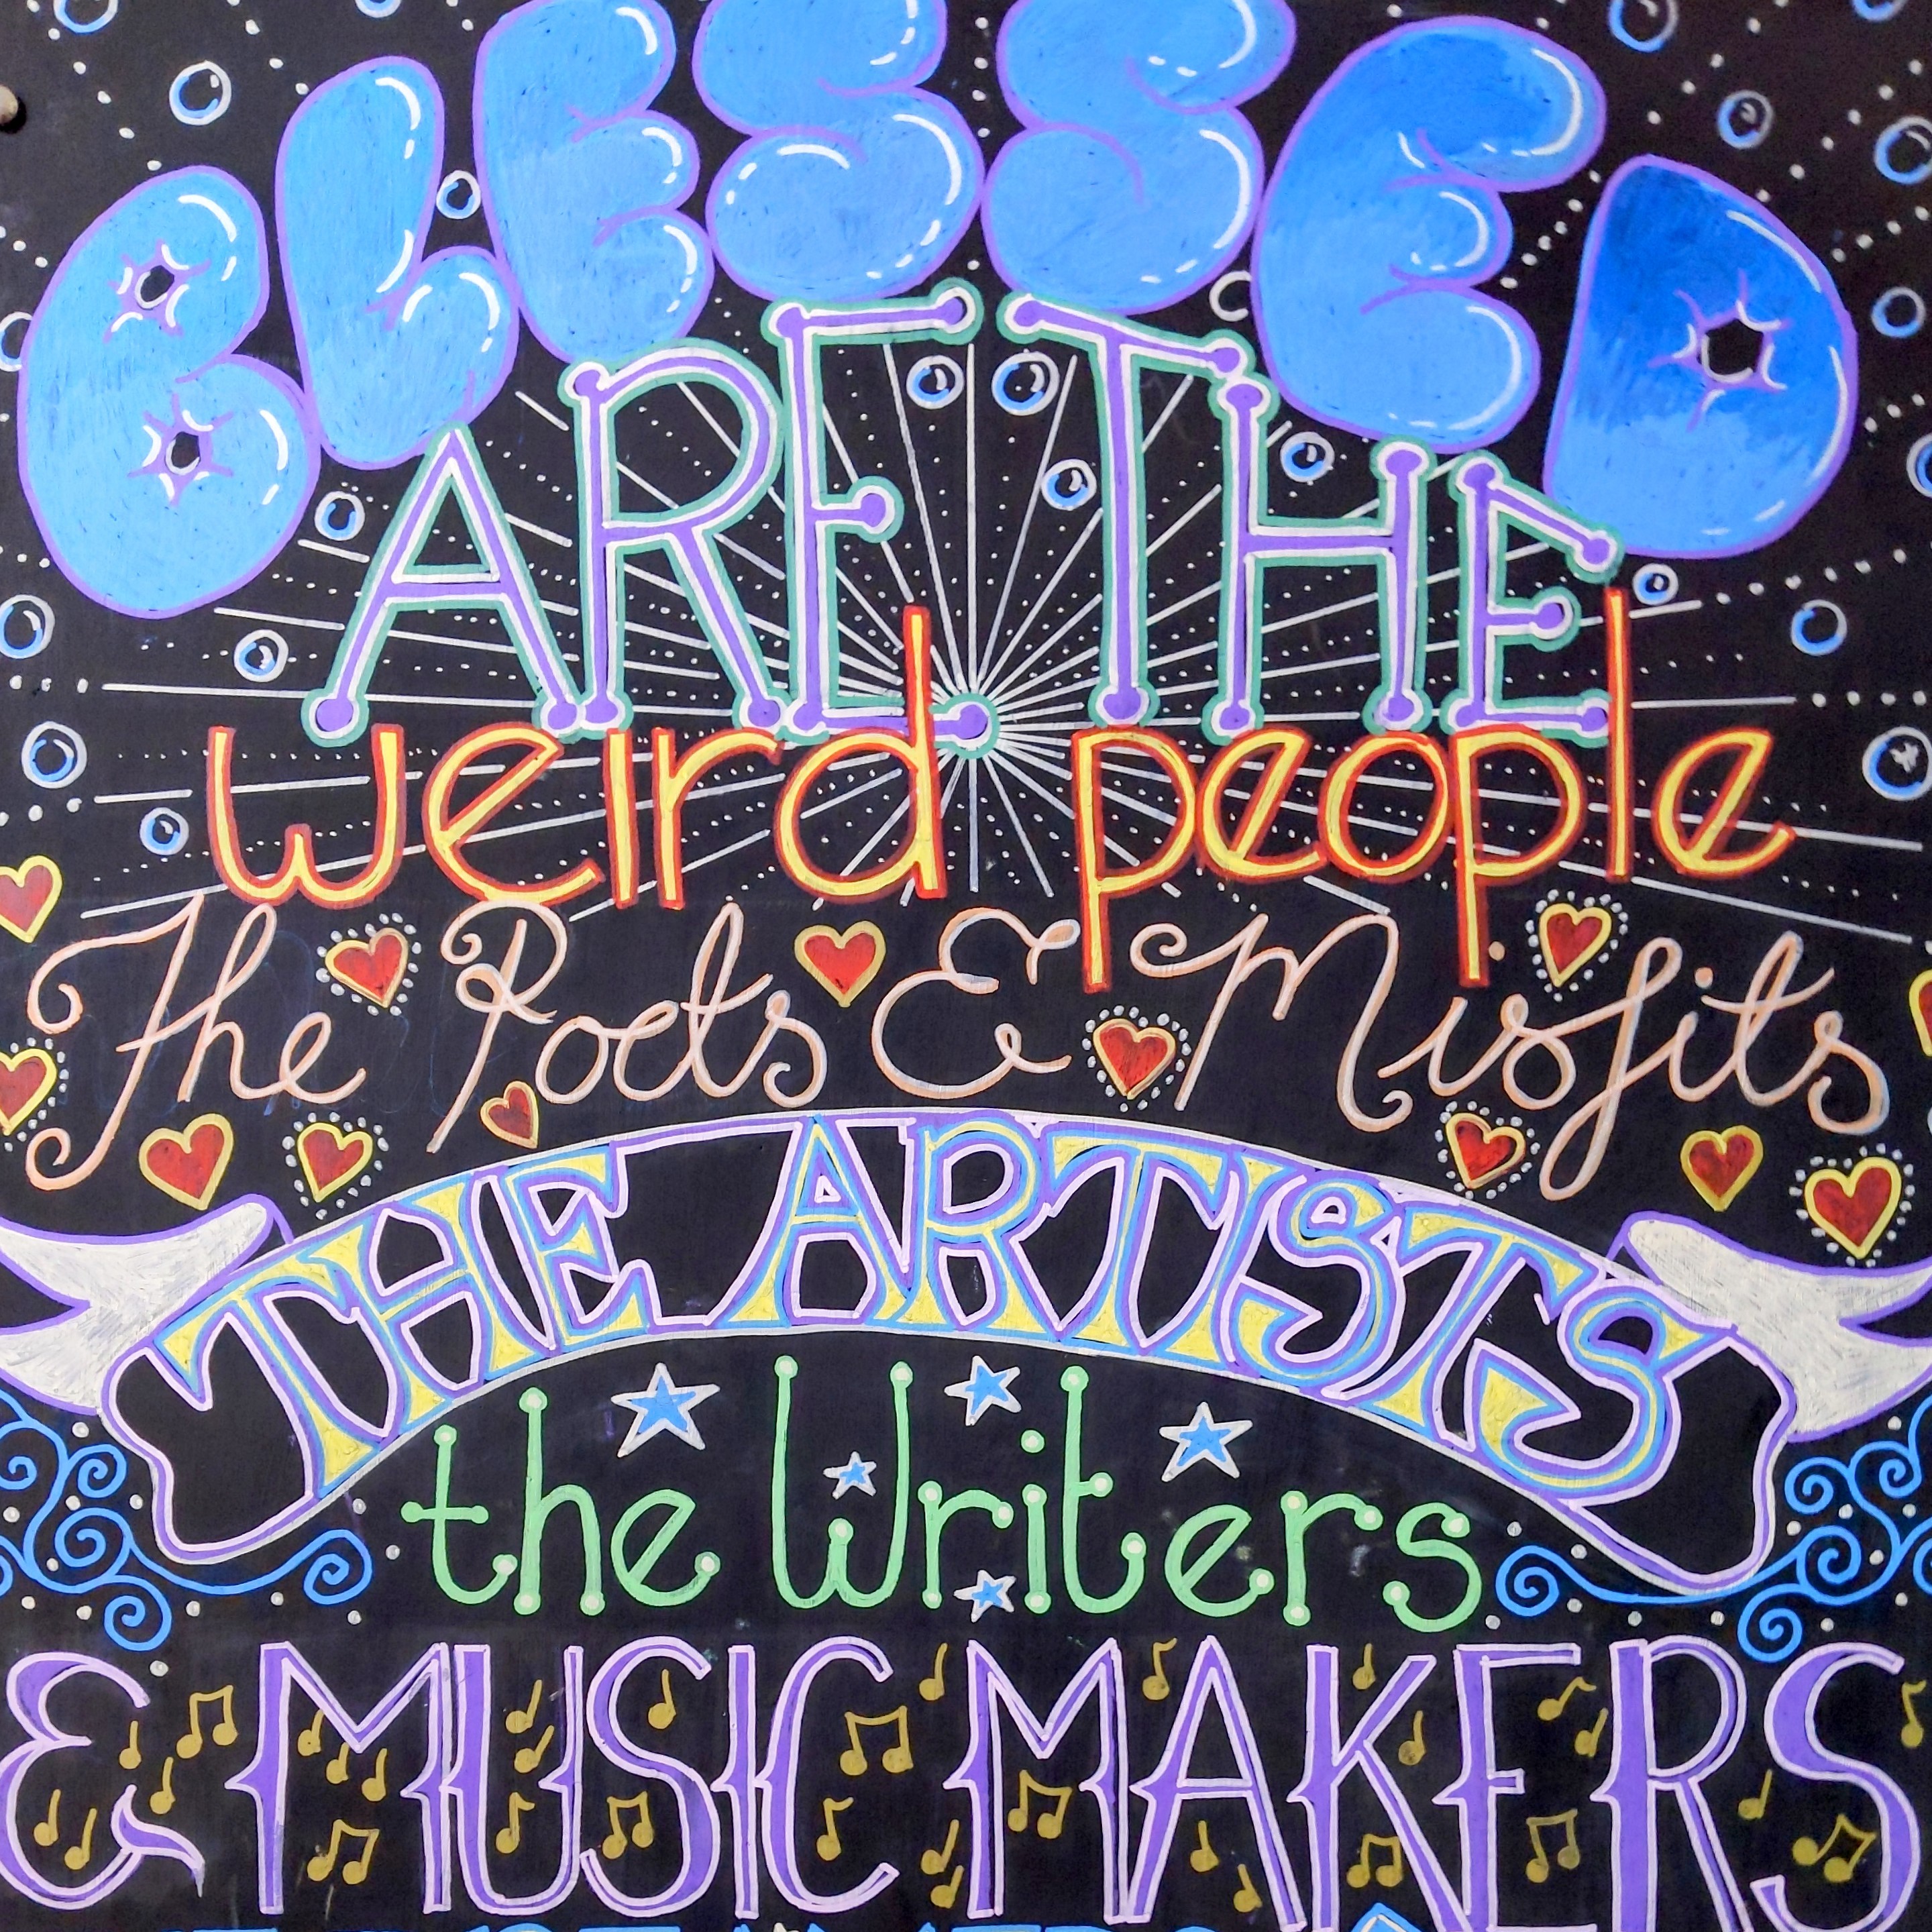 BLESSED
ARE THE
weird people
The Poets & Misfits
THE ARTISTS
the Writers
& MUSIC MAKERS